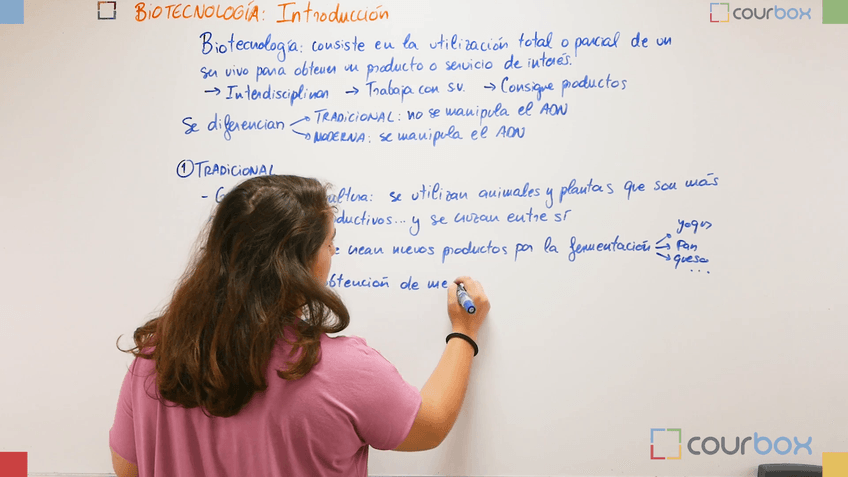 BIOTECNOLOGÍA: Introducción
courbox
Biotecnología: consiste en la utilización total o parcial de un
ser vivo para obtener un producto o servicio de interés.
→ Interdisciplinar → Trabaja con s.v. → Consigue productos
Se diferencian
TRADICIONAL: no se manipula el ADN
MODERNA: se manipula el ADN
① TRADICIONAL
se utilizan animales y plantas que son más
y se cruzan entre sí
crean nuevos productos por la fermentación
yogur
pan
queso
...
obtención de me
courbox